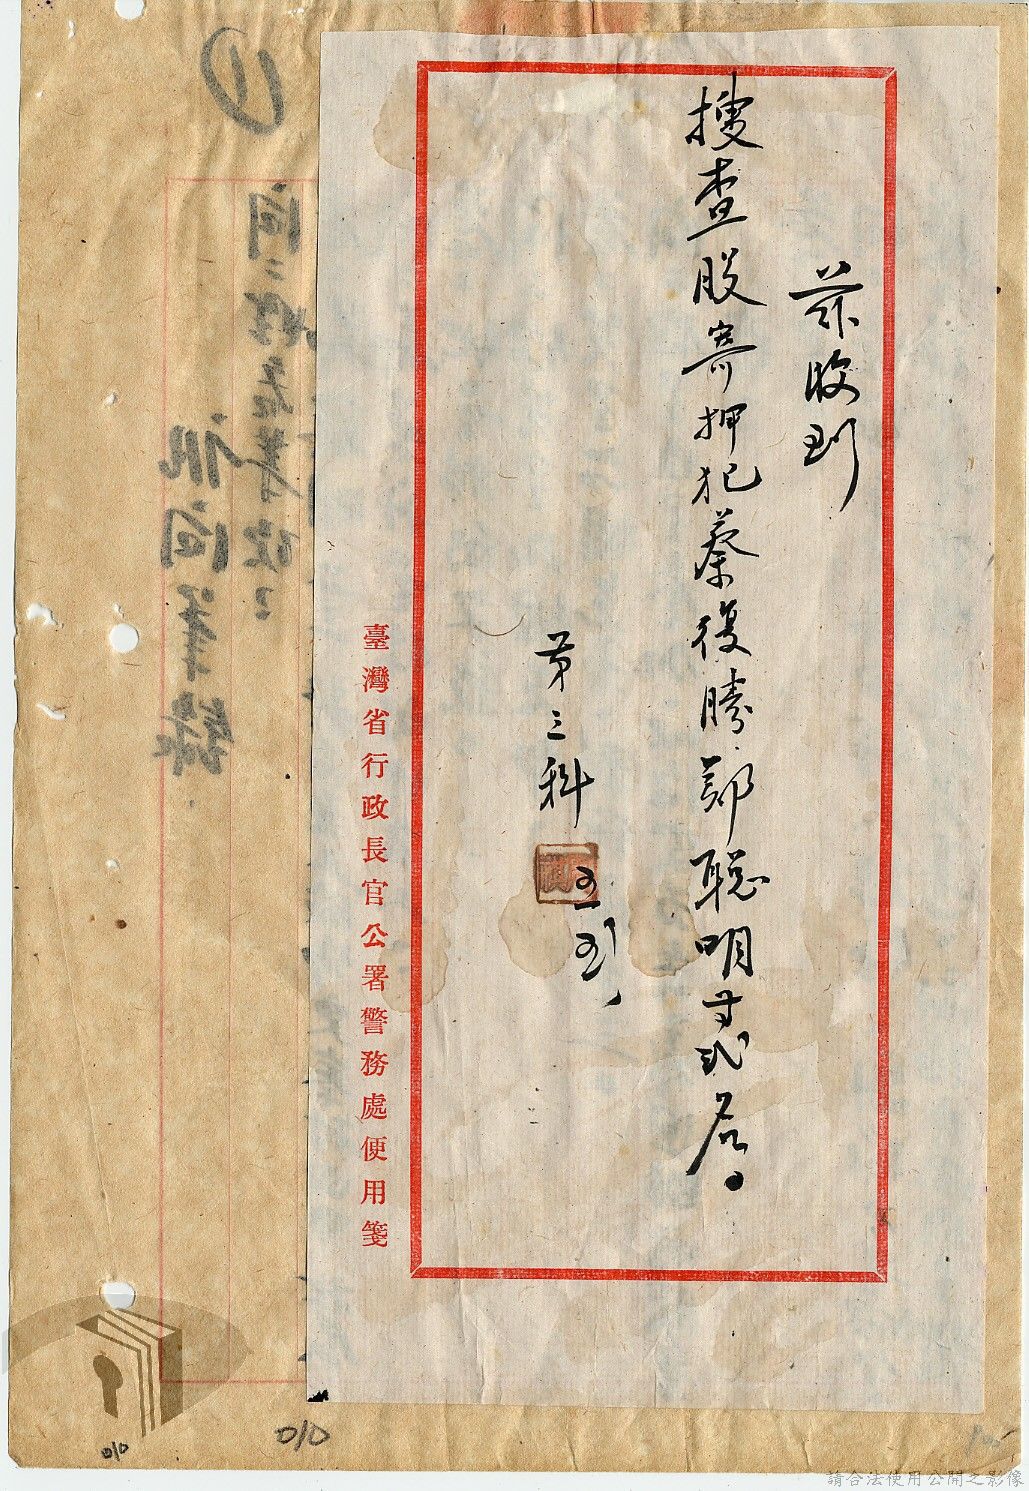 茲收到
搜查股寄押犯蔡復勝鄭聰明等弍名。
第三科
臺灣省行政長官公署警務處便用箋
(1)
訊問筆錄
010
010
請合法使用公開之影像